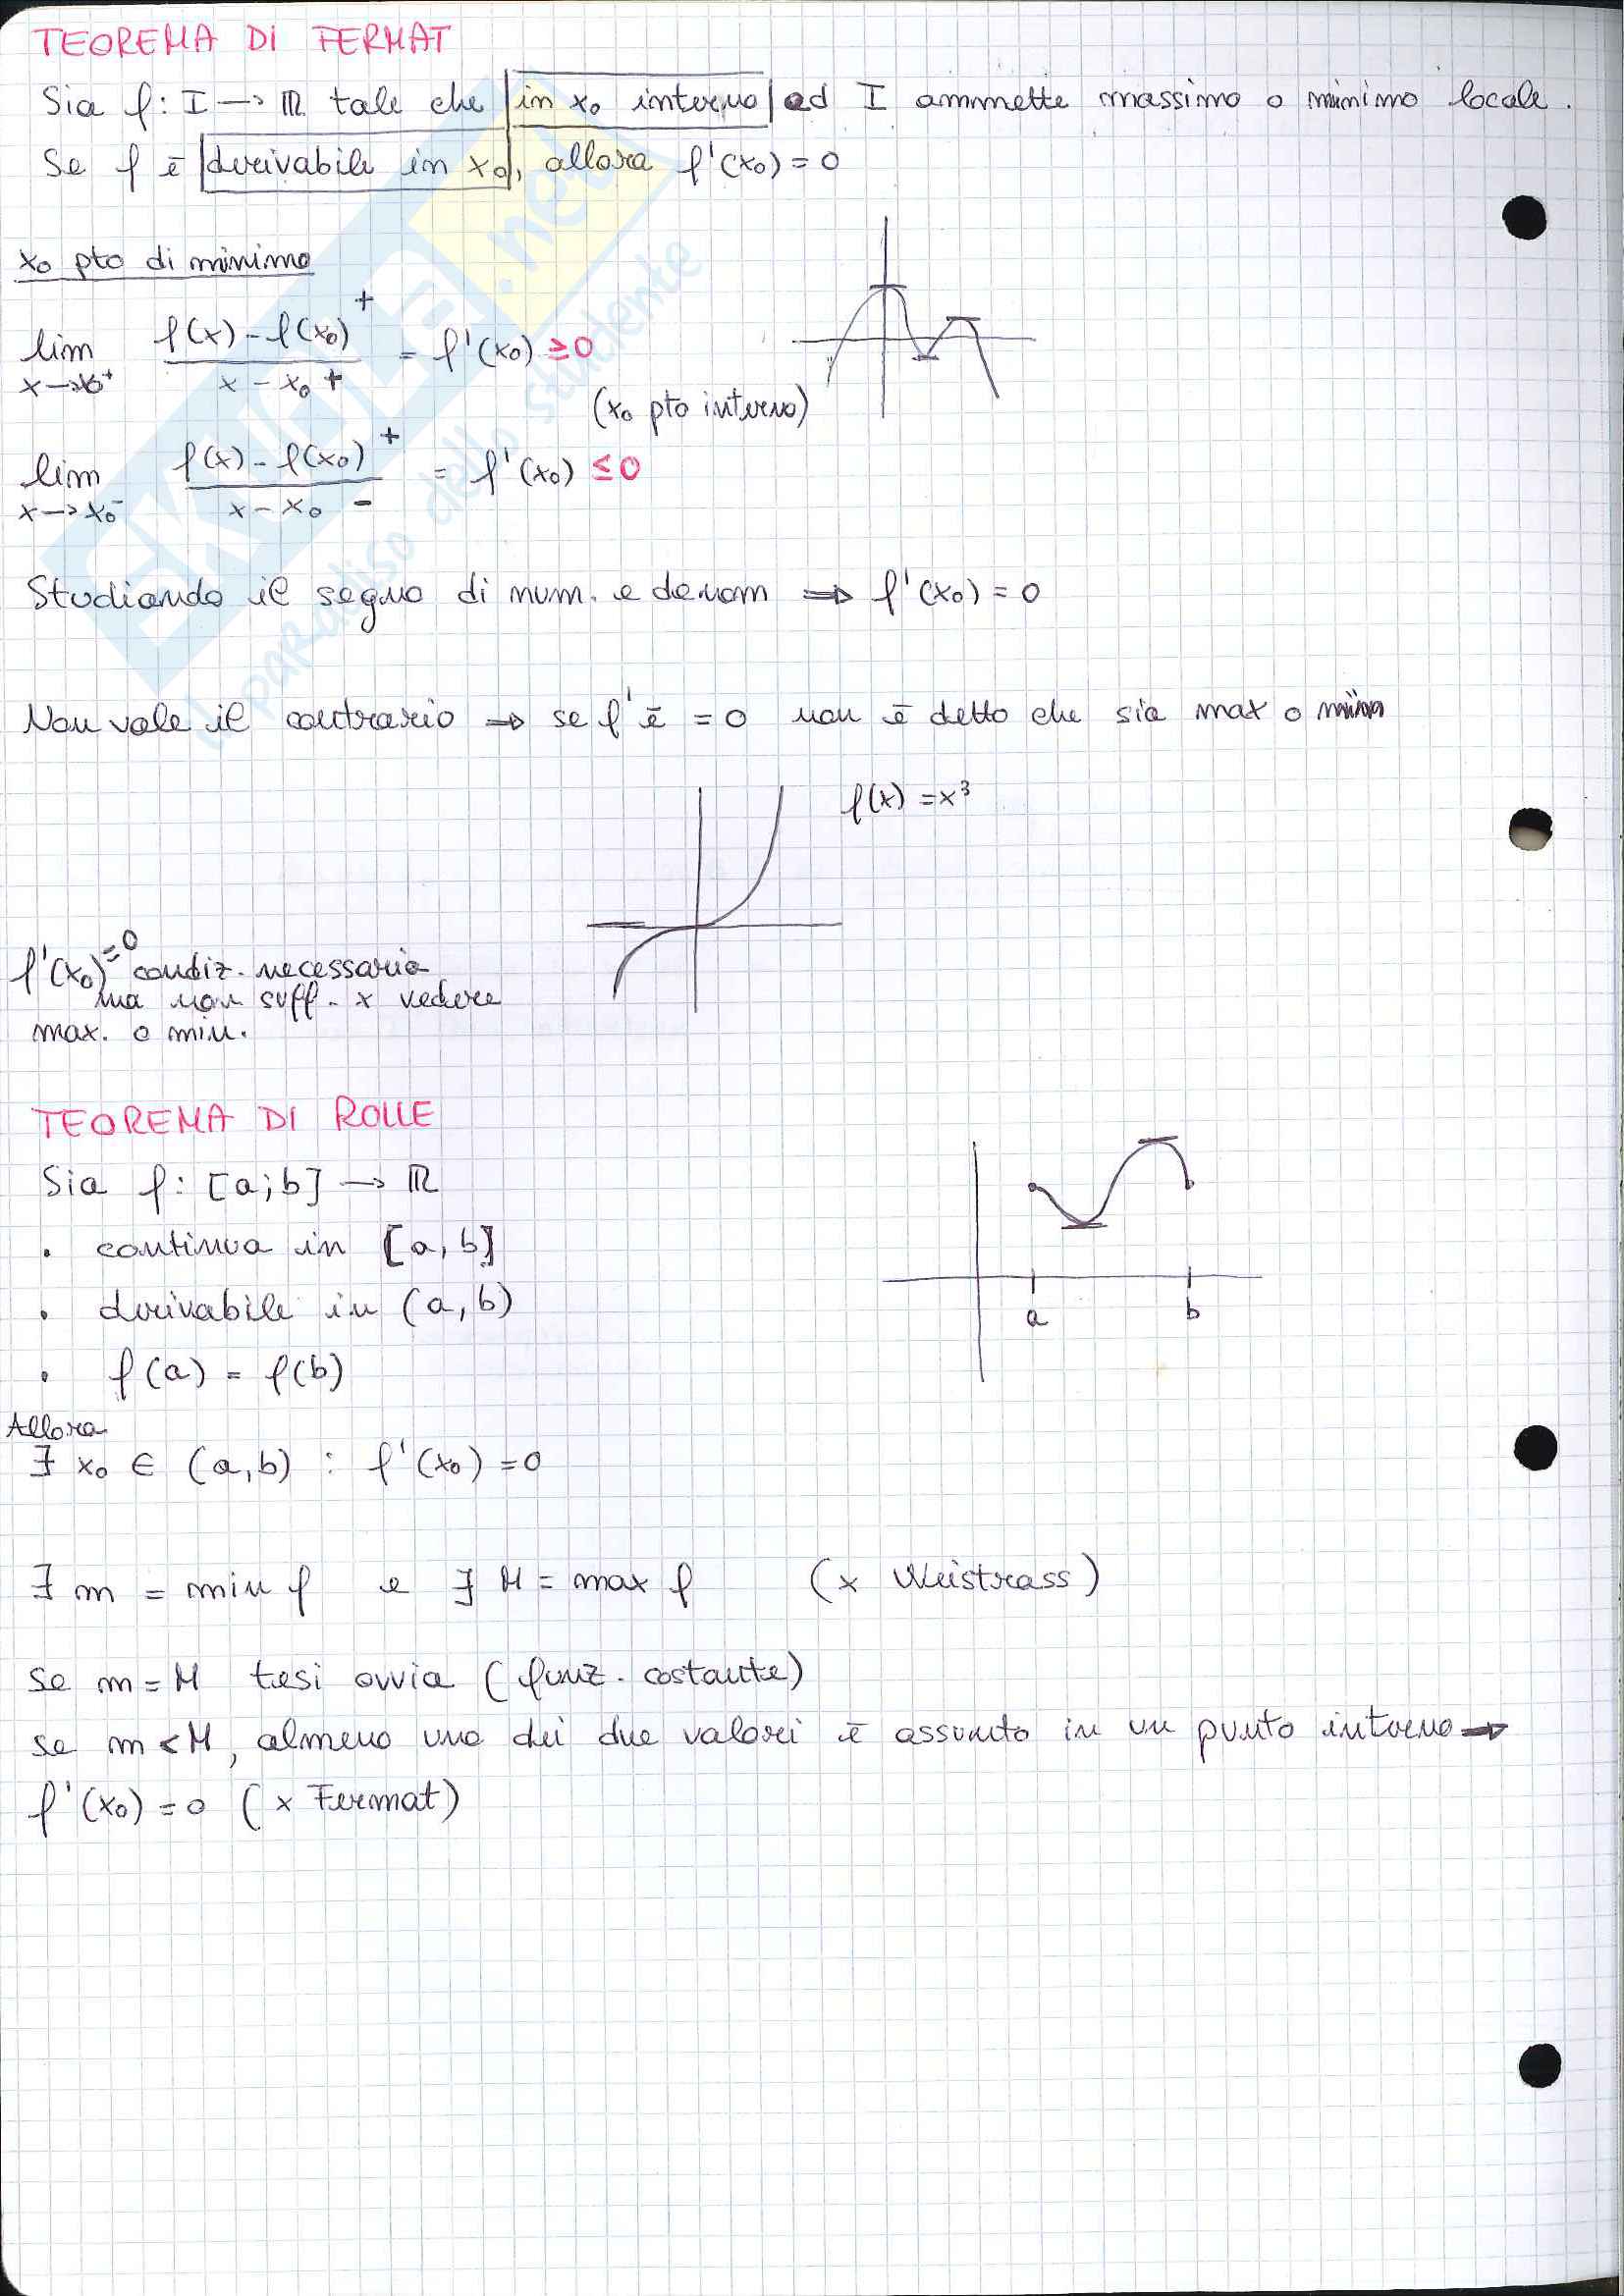 TEOREMA DI FERMAT
Sia f: I → ℝ tale che in x₀ interno ad I ammette massimo o minimo locale.
Se f è derivabile in x₀, allora f'(x₀) = 0
x₀ pto di minimo
lim x→x₀⁺ f(x) - f(x₀) + / x - x₀ + = f'(x₀) ≥ 0
(x₀ pto interno)
lim x→x₀⁻ f(x) - f(x₀) + / x - x₀ - = f'(x₀) ≤ 0
Studiando il segno di num. e denom ⇒ f'(x₀) = 0
Non vale il contrario ⇒ se f' è = 0 non è detto che sia max o min
f(x) = x³
f'(x₀) = 0 condiz. necessaria
ma non suff. x vedere
max. o min.
TEOREMA DI ROLLE
Sia f: [a; b] → ℝ
• continua in [a, b]
• derivabile in (a, b)
• f(a) = f(b)
a b
Allora
∃ x₀ ∈ (a, b) : f'(x₀) = 0
∃ m = min f e ∃ M = max f (x Weistrass)
Se m = M tesi ovvia (funz. costante)
se m < M, almeno uno dei due valori è assunto in un punto interno ⇒
f'(x₀) = 0 (x Fermat)
SKUOLA.net
il paradiso dello studente